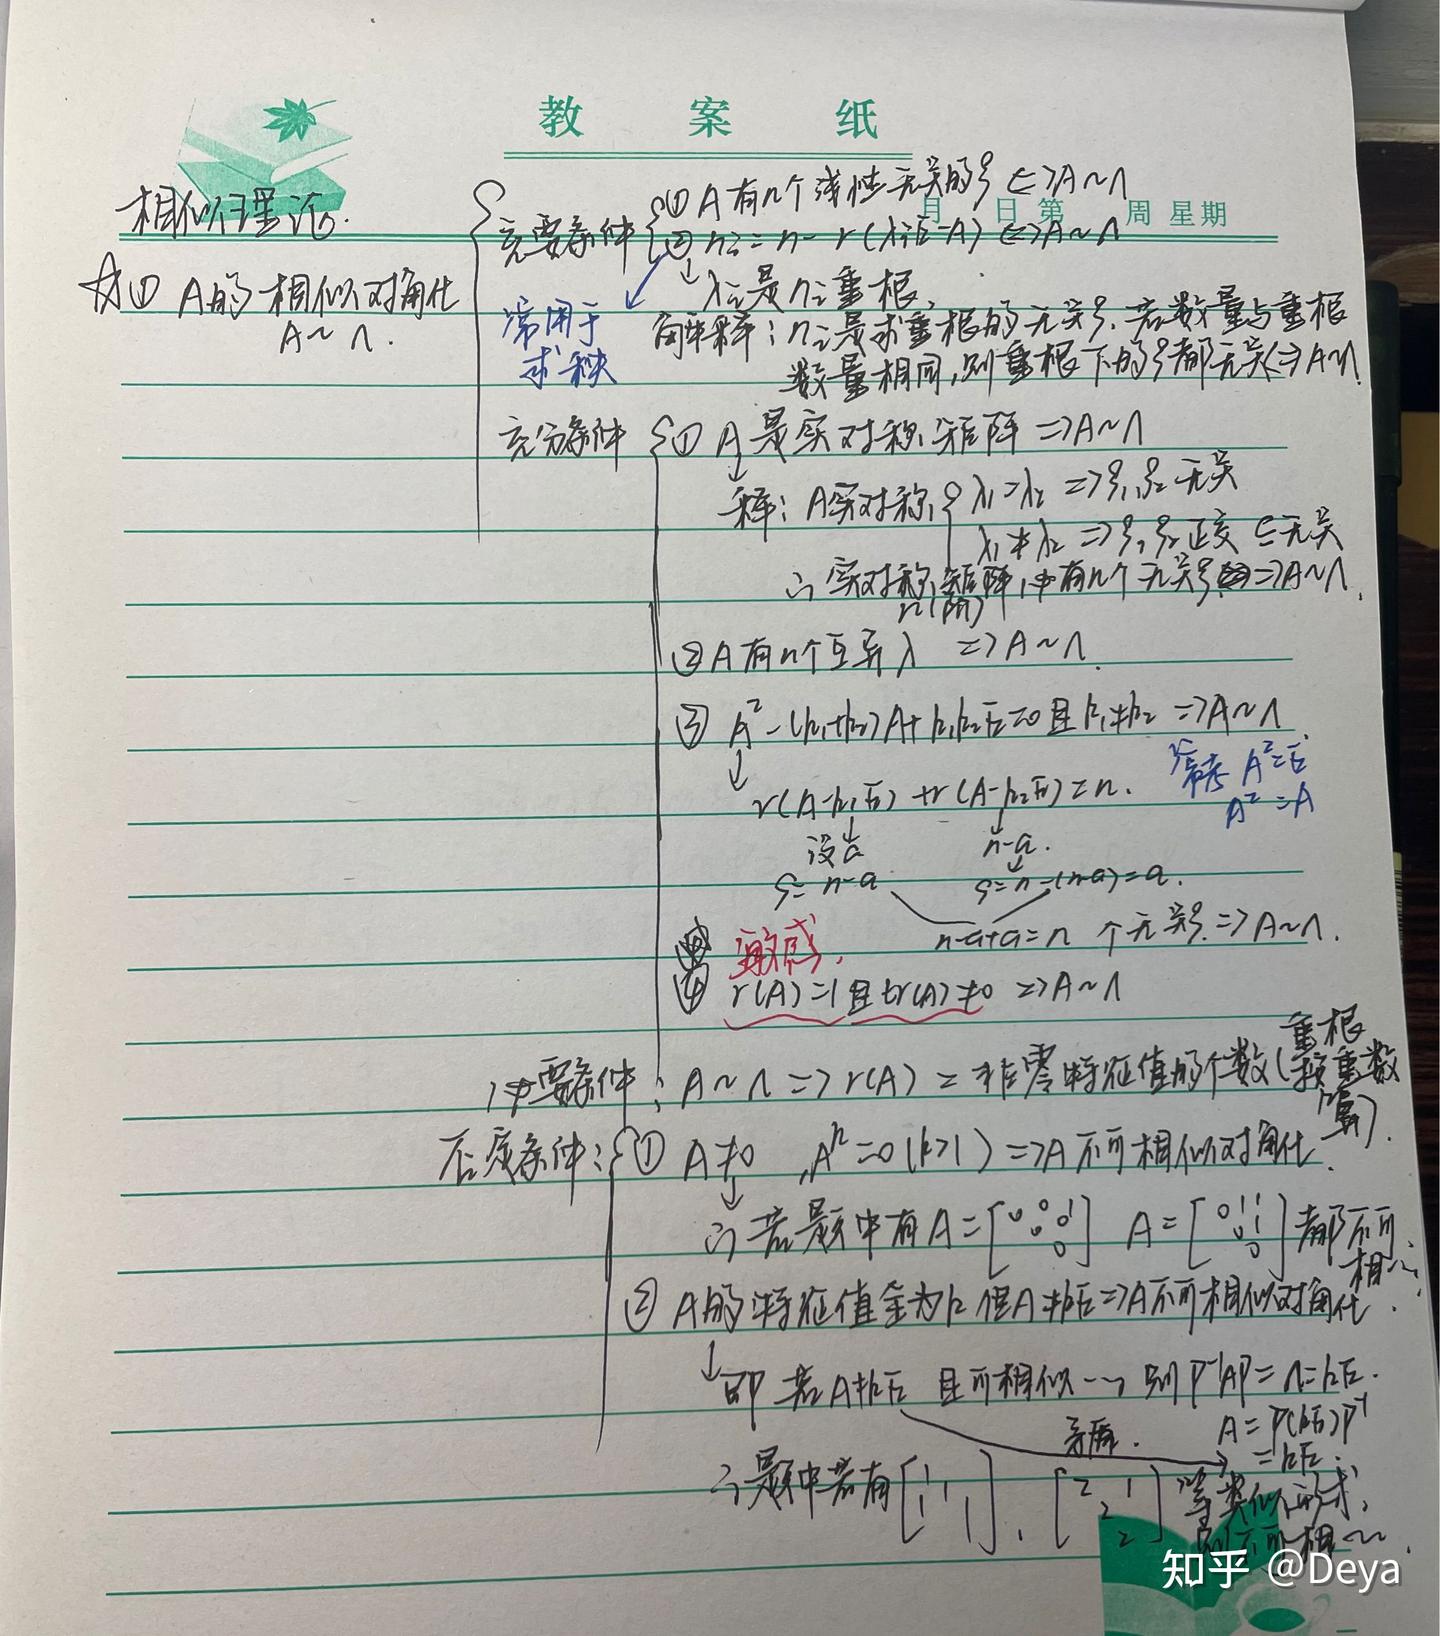 教 案 纸
月 日 第 周 星期
相似理论.
☆① A的相似对角化
A~Λ.
充要条件
① A有n个线性无关的ξ <=> A~Λ
② nᵢ = n - r(λᵢE-A) <=> A~Λ
↓ λᵢ是nᵢ重根
常用于
求秩
解释: nᵢ是求重根的无关ξ, 若数量与重根
数量相同, 则重根下的ξ都无关 <=> A~Λ.
充分条件
① A是实对称矩阵 => A~Λ
↓
释: A实对称, λ₁=λ₂ => ξ₁,ξ₂无关
λ₁≠λ₂ => ξ₁,ξ₂正交 ∈无关
∴ 实对称矩阵必有n个无关ξ => A~Λ.
n(阶)
② A有n个互异λ => A~Λ.
③ A²-(k₁+k₂)A+k₁k₂E=0且k₁≠k₂ => A~Λ
↓
r(A-k₁E)+r(A-k₂E)=n.
常考 A²=E
A²=A
设a
n-a.
s=n-a
s=n-(n-a)=a.
n-a+a=n 个无关ξ. => A~Λ.
敏感.
④ r(A)=1且tr(A)≠0 => A~Λ
必要条件: A~Λ => r(A)=非零特征值的个数(重根
按重数
算).
否定条件:
① A≠0, Aᵏ=0(k>1) => A不可相似对角化.
↓
∴ 若题中有A=[0 0 1 0 0 0] A=[0 1 1 0 1 0]都不可
相~.
② A的特征值全为k但A≠kE => A不可相似对角化.
↓
即 若A≠kE 且可相似… 则P⁻¹AP=Λ=kE.
A=P(kE)P⁻¹
=kE.
矛盾.
∴题中若有[1 1 1 1 1], [2 1 2 2]等类似形式,
则不可相~.
知乎 @Deya